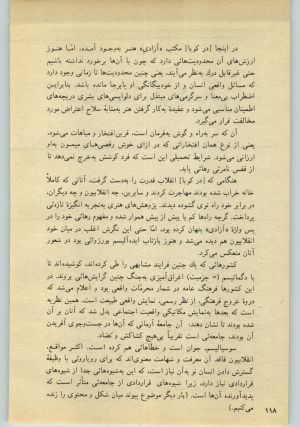 در اینجا [در کوبا] مکتب «آزادی» هنر به‌وجود آمده، امّا هنوز
ارزش‌های آن محدودیت‌هائی دارد که چون با آن‌ها برخورد نداشته باشیم
حتی غیرقابل درك به‌نظر می‌آیند، یعنی چنین محدودیت‌ها تا زمانی وجود دارد
که مسائل واقعی انسان و از خودبیگانگی او پابرجا مانده باشد. بنابراین
اضطراب بی‌معنا و سرگرمی‌های مبتذل برای دلواپسی‌های بشری دریچه‌های
اطمینان مناسبی می‌شود و عقیدۀ به‌کار گرفتن هنر به‌مثابۀ سلاح اعتراض مورد
مخالفت قرار می‌گیرد.
آن که سر به‌راه و گوش به‌فرمان است، قرین‌افتخار و مباهات می‌شود،
یعنی از نوع همان افتخاراتی که در ازای خوش رقصی‌های میمون به‌او
ارزانی می‌شود. شرایط تحمیلی این است که فرد کوشش به‌خرج نمی‌دهد تا
از قفس نامرئی رهائی یابد.
هنگامی که [در کوبا] انقلاب قدرت را به‌دست گرفت، آنانی که کاملاً
خانه خراب شده بودند مهاجرت کردند و سایرین، چه انقلابیون و چه دیگران،
در برابر خود راه نوی گشوده دیدند. پژوهش‌های هنری به‌تجربه انگیزۀ تازه‌ئی
پرداخت. گرچه راه‌ها کم یا بیش از پیش هموار شده و مفهوم رهائی خود را در
پس واژۀ «آزادی» پنهان کرده بود، امّا حتی این نگرش اغلب در میان خود
انقلابیون هم دیده می‌شد و هنوز بازتاب ایده‌آلیسم بورژوائی بود در شعور
آنان منعکس می‌کرد.
کشورهائی که یك چنین فرایند مشابهی را طی کرده‌اند، کوشیده‌اند تا
با دگماتیسم (= جزمیت) اغراق‌آمیزی به‌جنگ چنین گرایش‌هائی بروند. در
این کشورها فرهنگ عامه در شمار محرمّات واقعی بود و اعلام می‌شد که
ذروۀ عروج فرهنگی، از نظر رسمی، نمایش واقعی طبیعت است. همین نظریه
است که بعدها به‌نمایش مکانیکی واقعیت اجتماعی بدل شد که آنان بر آن
شده بودند تا نشان دهند: آن جامعۀ آرمانی که آن‌ها در جست‌وجوی آفریدن
آن بودند، جامعه‌ئی است تقریباً بی‌هیچ کشاکش و تضاد.
سوسیالیسم، جوان است و خطاهائی هم کرده است. اکثر مواقع،
انقلابیون فاقد آن معرفت و شهامت معنوی‌اند که برای رویاروئی با وظیفۀ
گسترش دادن انسان نو به‌آن نیاز است، که این به‌شیوه‌هائی جدا از شیوه‌های
قراردادی نیاز دارد، زیرا شیوه‌های قراردادی از جامعه‌ئی متأثر است که
پدیدآورندۀ آن‌ها است. (بار دیگر موضوع پیوند میان شکل و محتوی را زنده
می‌کنیم.)
۱۱۸